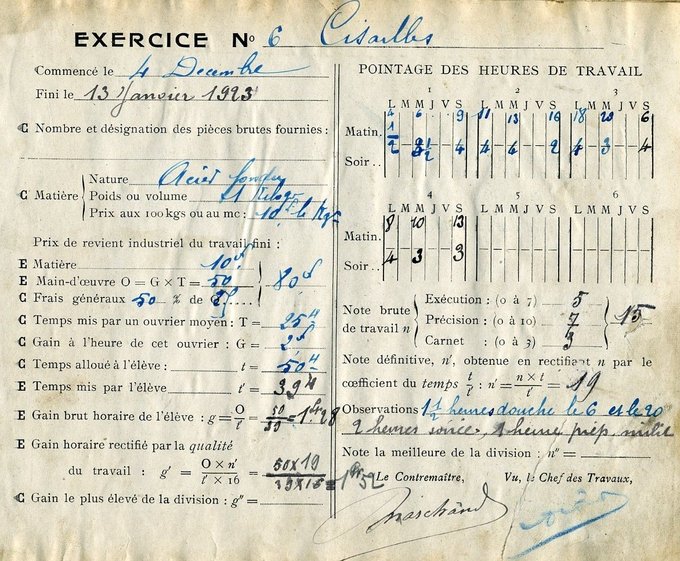 EXERCICE No 6 Cisailles
Commencé le 4 Decembre
Fini le 13 Janvier 1923
C Nombre et désignation des pièces brutes fournies :
C Matière
Nature Acier fondu
Poids ou volume 1 Kilog
Prix aux 100 kgs ou au mc : 10f le Kgr
Prix de revient industriel du travail fini :
E Matière 10f
E Main-d'œuvre O = G × T = 50
C Frais généraux 50 % de
80f
C Temps mis par un ouvrier moyen : T = 25H
C Gain à l'heure de cet ouvrier : G = 2f
C Temps alloué à l'élève : t = 50H
E Temps mis par l'élève t' = 39H
E Gain brut horaire de l'élève : g = O/t' = 50/39 = 1fr28
E Gain horaire rectifié par la qualité
du travail : g' = O × n'/t' × 16 = 50×19/39×16 = 1fr52
C Gain le plus élevé de la division : g" =
POINTAGE DES HEURES DE TRAVAIL
1 2 3
L M M J V S L M M J V S L M M J V S
4 6 9 11 13 16 18 20 6
Matin. 1/2
Soir . . 4 4 4 4 4 3 4
4 5 6
L M M J V S L M M J V S L M M J V S
8 10 13
Matin.
Soir . . 4 3 3
Note brute
de travail n
Exécution : (0 à 7) 5
Précision : (0 à 10) 7
Carnet : (0 à 3) 3
15
Note définitive, n', obtenue en rectifiant n par le
coefficient du temps t/t' : n' = n × t/t' = 19
Observations 1 1/2 heures douche le 6 et le 20
2 heures soirée, 1 heure prép. milit
Note la meilleure de la division : n" =
Le Contremaître, Vu, le Chef des Travaux,
Marchand